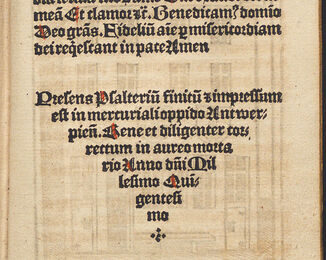 meā Et clamor ⁊č. Benedicam⁹ domio
Deo grās. Fideliū aīe ꝑ misericordiam
dei req̄escant in pace Amen
Presens Psalteriū finitū ⁊ impressum
est in mercuriali oppido Antwer⸗
pien̄. Bene et diligenter cor⸗
rectum in aureo morta
rio Anno dn̄i Mil
lesimo Quin⸗
gentesi
mo